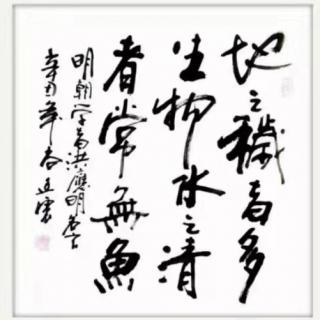 地之穢者多
生物水之清
者常無魚
明朝学者洪應明名言
辛丑年春